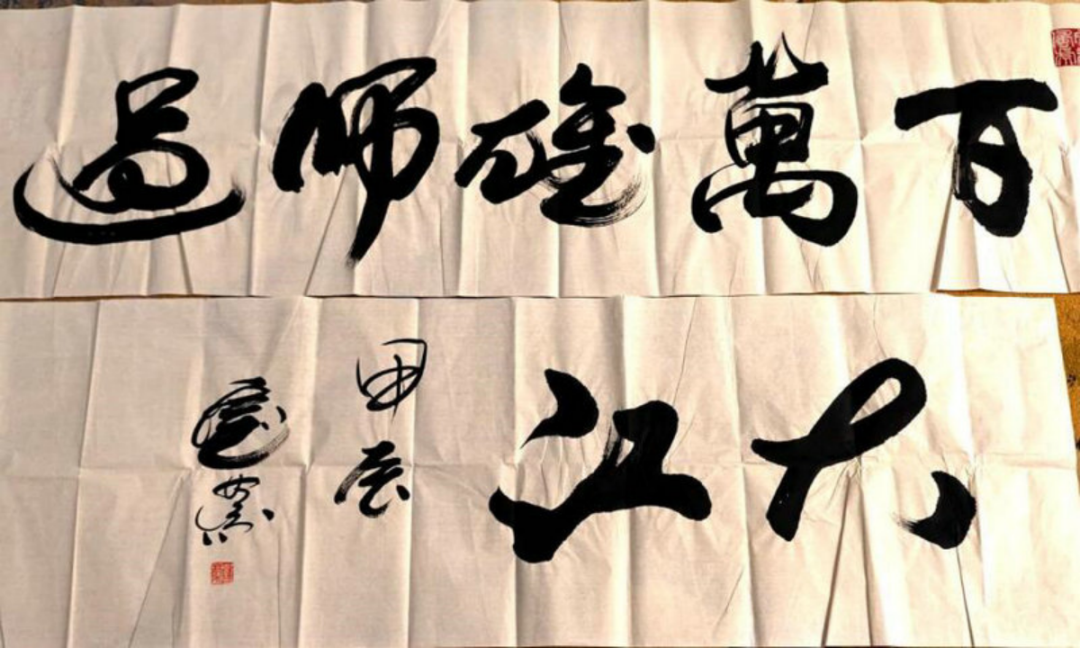 百萬雄師過
大江
甲辰